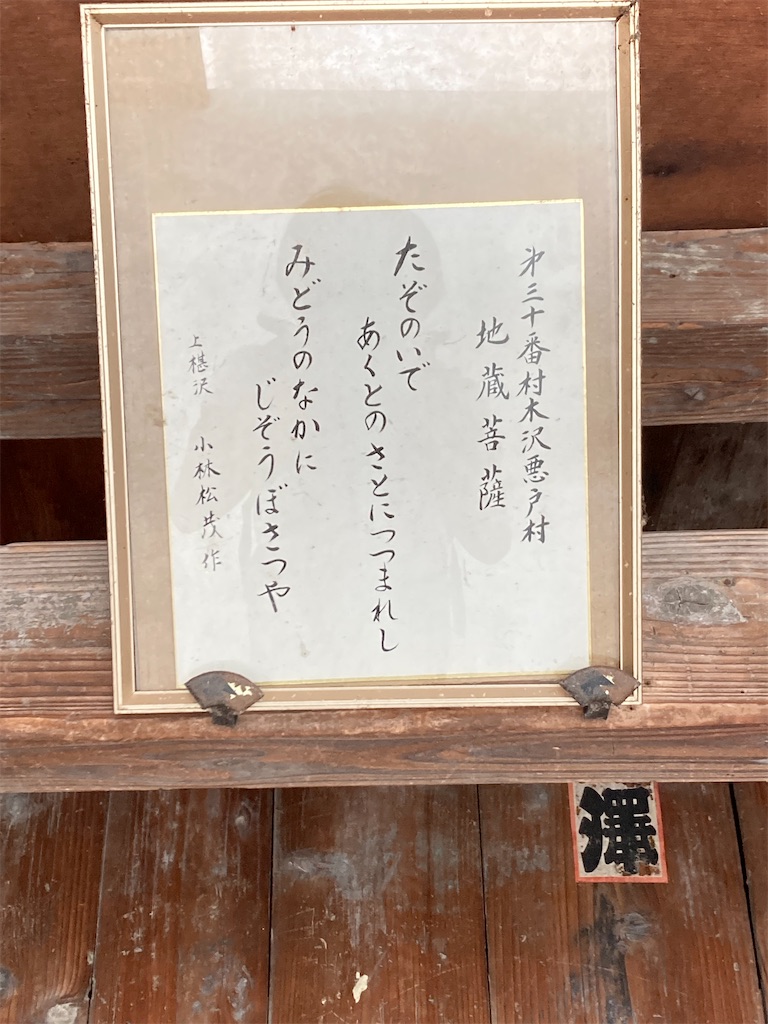 㐧三十番村木沢悪戸村
地蔵菩薩
たぞのいで
あくとのさとにつつまれし
みどうのなかに
じぞうぼさつや
上椹沢 小林松茂作
澤